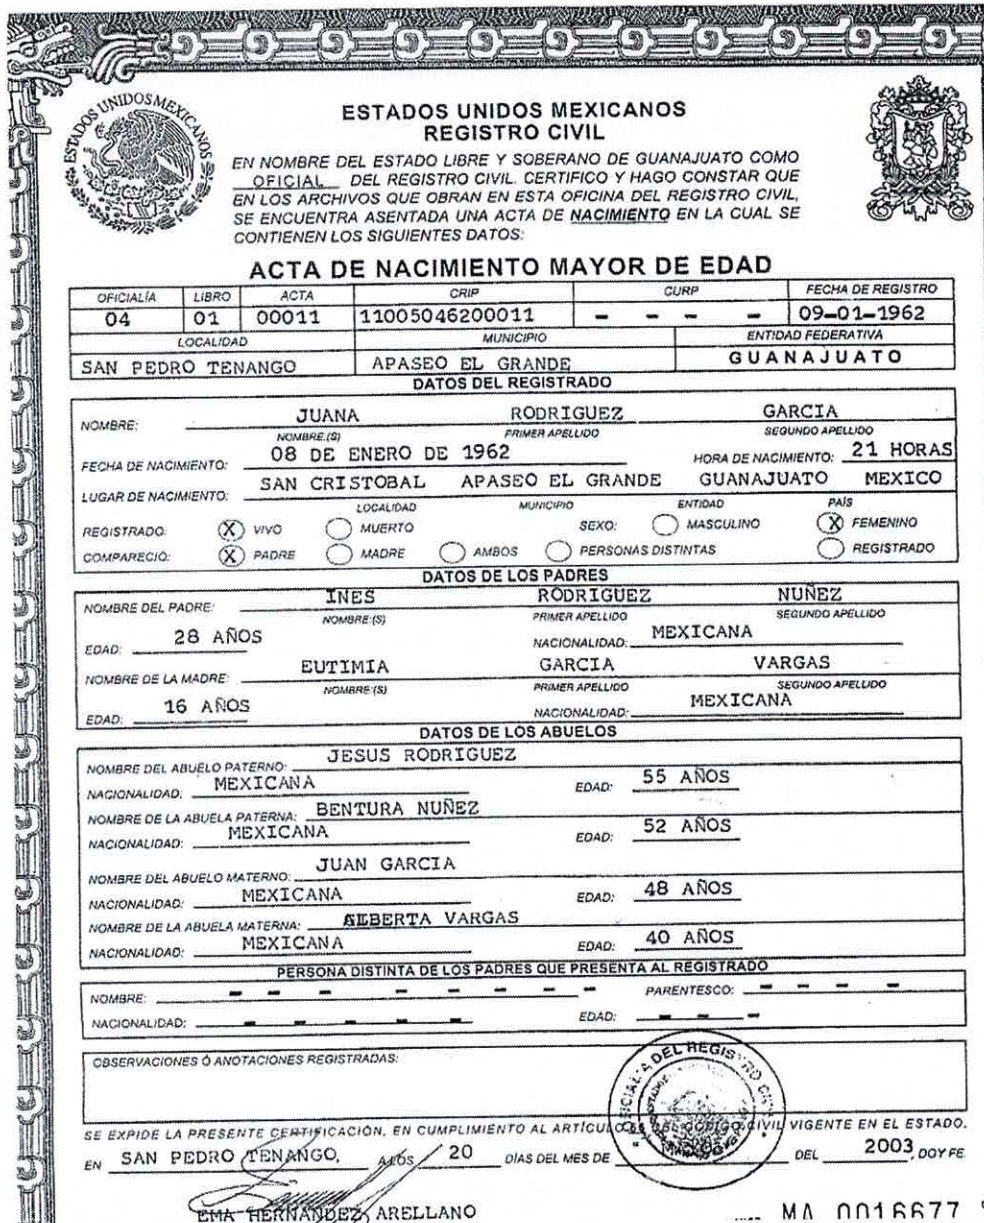 ESTADOS UNIDOS MEXICANOS
ESTADOS UNIDOS MEXICANOS
REGISTRO CIVIL
EN NOMBRE DEL ESTADO LIBRE Y SOBERANO DE GUANAJUATO COMO
OFICIAL DEL REGISTRO CIVIL. CERTIFICO Y HAGO CONSTAR QUE
EN LOS ARCHIVOS QUE OBRAN EN ESTA OFICINA DEL REGISTRO CIVIL,
SE ENCUENTRA ASENTADA UNA ACTA DE NACIMIENTO EN LA CUAL SE
CONTIENEN LOS SIGUIENTES DATOS:
ACTA DE NACIMIENTO MAYOR DE EDAD
OFICIALÍA LIBRO ACTA CRIP CURP FECHA DE REGISTRO
04 01 00011 11005046200011 - - - - 09-01-1962
LOCALIDAD MUNICIPIO ENTIDAD FEDERATIVA
SAN PEDRO TENANGO APASEO EL GRANDE GUANAJUATO
DATOS DEL REGISTRADO
NOMBRE: JUANA RODRIGUEZ GARCIA
NOMBRE:(S) PRIMER APELLIDO SEGUNDO APELLIDO
FECHA DE NACIMIENTO: 08 DE ENERO DE 1962 HORA DE NACIMIENTO: 21 HORAS
LUGAR DE NACIMIENTO: SAN CRISTOBAL APASEO EL GRANDE GUANAJUATO MEXICO
LOCALIDAD MUNICIPIO ENTIDAD PAÍS
REGISTRADO: X VIVO MUERTO SEXO: MASCULINO X FEMENINO
COMPARECIO: X PADRE MADRE AMBOS PERSONAS DISTINTAS REGISTRADO
DATOS DE LOS PADRES
NOMBRE DEL PADRE: INES RODRIGUEZ NUÑEZ
NOMBRE:(S) PRIMER APELLIDO SEGUNDO APELLIDO
EDAD: 28 AÑOS NACIONALIDAD: MEXICANA
NOMBRE DE LA MADRE: EUTIMIA GARCIA VARGAS
NOMBRE:(S) PRIMER APELLIDO SEGUNDO APELLIDO
EDAD: 16 AÑOS NACIONALIDAD: MEXICANA
DATOS DE LOS ABUELOS
NOMBRE DEL ABUELO PATERNO: JESUS RODRIGUEZ
NACIONALIDAD: MEXICANA EDAD: 55 AÑOS
NOMBRE DE LA ABUELA PATERNA: BENTURA NUÑEZ
NACIONALIDAD: MEXICANA EDAD: 52 AÑOS
NOMBRE DEL ABUELO MATERNO: JUAN GARCIA
NACIONALIDAD: MEXICANA EDAD: 48 AÑOS
NOMBRE DE LA ABUELA MATERNA: VARGAS
NACIONALIDAD: MEXICANA EDAD: 40 AÑOS
PERSONA DISTINTA DE LOS PADRES QUE PRESENTA AL REGISTRADO
NOMBRE: - - - - - - - - PARENTESCO: - - - -
NACIONALIDAD: - - - - - EDAD: - - -
OBSERVACIONES Ó ANOTACIONES REGISTRADAS:
OFICIALIA DEL REGISTRO CIVIL
SE EXPIDE LA PRESENTE CERTIFICACIÓN, EN CUMPLIMIENTO AL ARTÍCULO DEL CODIGO CIVIL VIGENTE EN EL ESTADO.
EN SAN PEDRO TENANGO, A LOS 20 DIAS DEL MES DE DEL 2003, DOY FE.
EMA HERNANDEZ ARELLANO MA 0016677